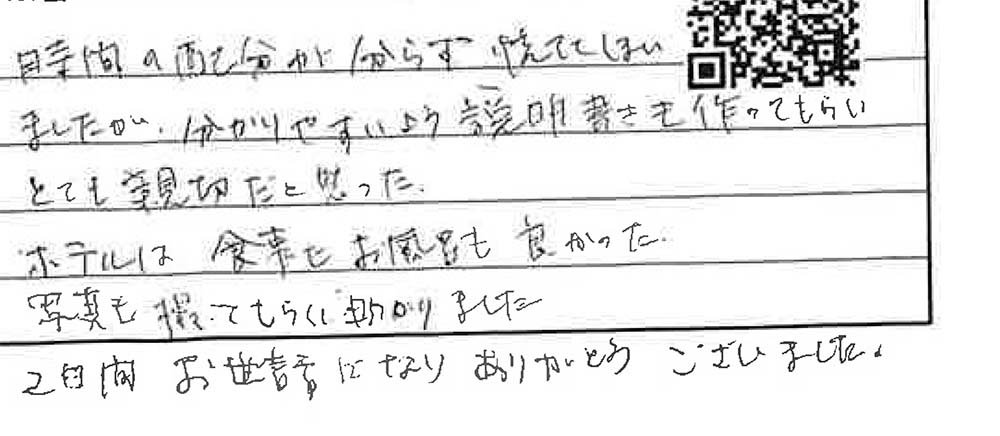 時間の配分が分からず慌ててしまい
ましたが、分かりやすいよう説明書きも作ってもらい
とても親切だと思った。
ホテルは食事もお風呂も良かった。
写真も撮ってもらい助かりました
2日間 お世話になりありがとうございました。